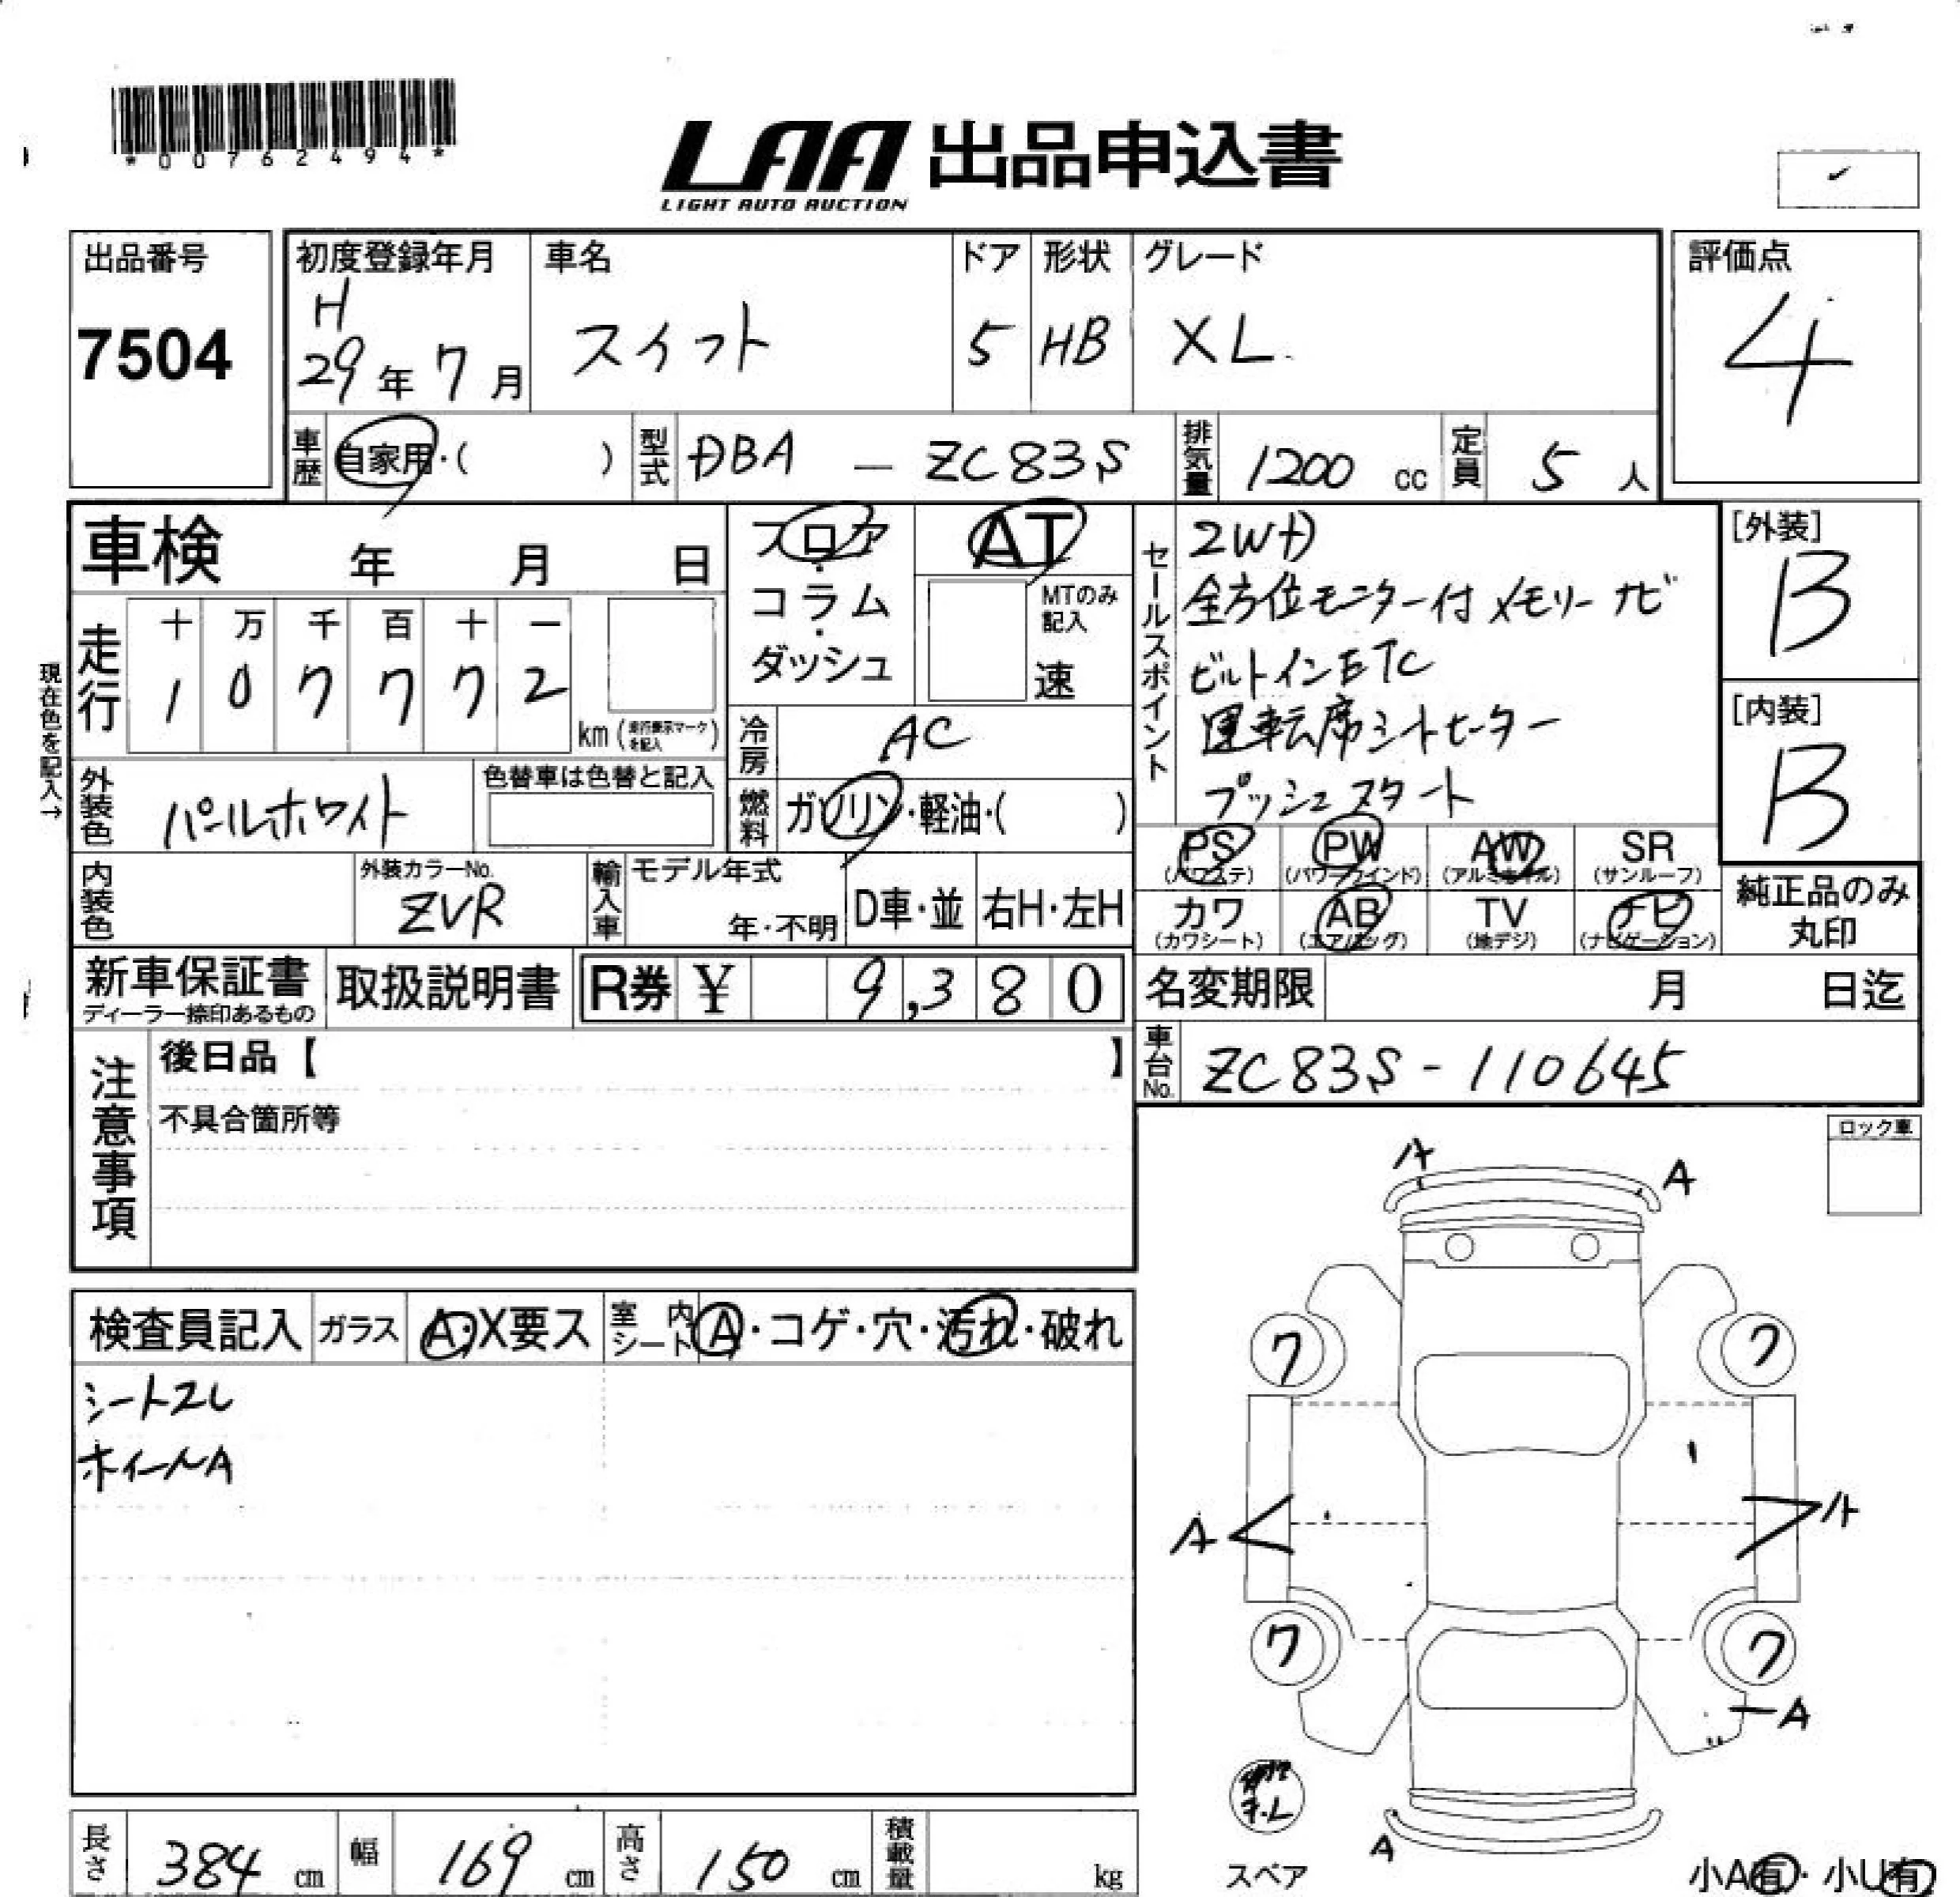 *00762494*
LAA 出品申込書
LIGHT AUTO AUCTION
出品番号
7504
初度登録年月
H
29年 7月
車名
スイフト
ドア
5
形状
HB
グレード
XL
評価点
4
車歴
自家用・( )
型式
DBA - ZC83S
排気量
1200 cc
定員
5 人
車検 年 月 日
フロア・コラム・ダッシュ
AT
MTのみ記入
速
セールスポイント
2WD
全方位モニター付メモリーナビ
ビルトインETC
運転席シートヒーター
プッシュスタート
[外装]
B
[内装]
B
現在色を記入→
走行
十 万 千 百 十 一
1 0 7 7 7 2
km (走行表示マークを記入)
冷房
AC
外装色
パールホワイト
色替車は色替と記入
燃料
ガソリン・軽油・( )
PS
(パワステ)
PW
(パワーウインド)
AW
(アルミホイル)
SR
(サンルーフ)
内装色
外装カラーNo.
ZVR
輸入車
モデル年式
年・不明
D車・並
右H・左H
カワ
(カワシート)
AB
(エアバッグ)
TV
(地デジ)
ナビ
(ナビゲーション)
純正品のみ
丸印
新車保証書
ディーラー捺印あるもの
取扱説明書
R券 ¥ 9,380
名変期限 月 日迄
注意事項
後日品【 】
不具合箇所等
車台No.
ZC83S-110645
ロック車
検査員記入
ガラス
A・X要ス
室内シート
A・コゲ・穴・汚れ・破れ
シートスレ
ホイールA
A
A
ワ
ワ
A
A
ワ
ワ
A
A
スペア
小A有・小U有
長さ
384 cm
幅
169 cm
高さ
150 cm
積載量
kg